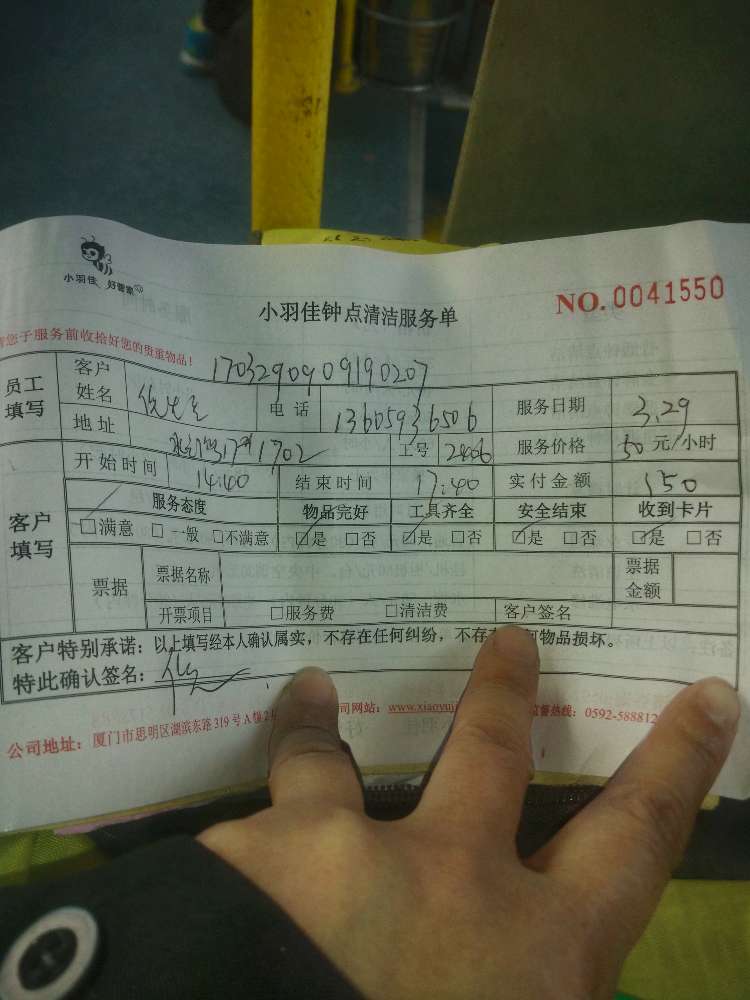 小羽佳 好管家
小羽佳钟点清洁服务单
NO. 0041550
请您于服务前收拾好您的贵重物品！
1703290909190207
员工填写 客户姓名 电话 13605936506 服务日期 3.29
地址 1702 工号 2406 服务价格 50 元/小时
客户填写 开始时间 14:40 结束时间 17:40 实付金额 150
服务态度 物品完好 工具齐全 安全结束 收到卡片
☑满意 □一般 □不满意 ☑是 □否 ☑是 □否 ☑是 □否 ☑是 □否
票据 票据名称 票据金额
开票项目 □服务费 □清洁费 客户签名
客户特别承诺：以上填写经本人确认属实，不存在任何纠纷，不存 何物品损坏。
特此确认签名：
公司地址：厦门市思明区湖滨东路319号A 司网站：www.xiaoyuj 监督热线：0592-588812